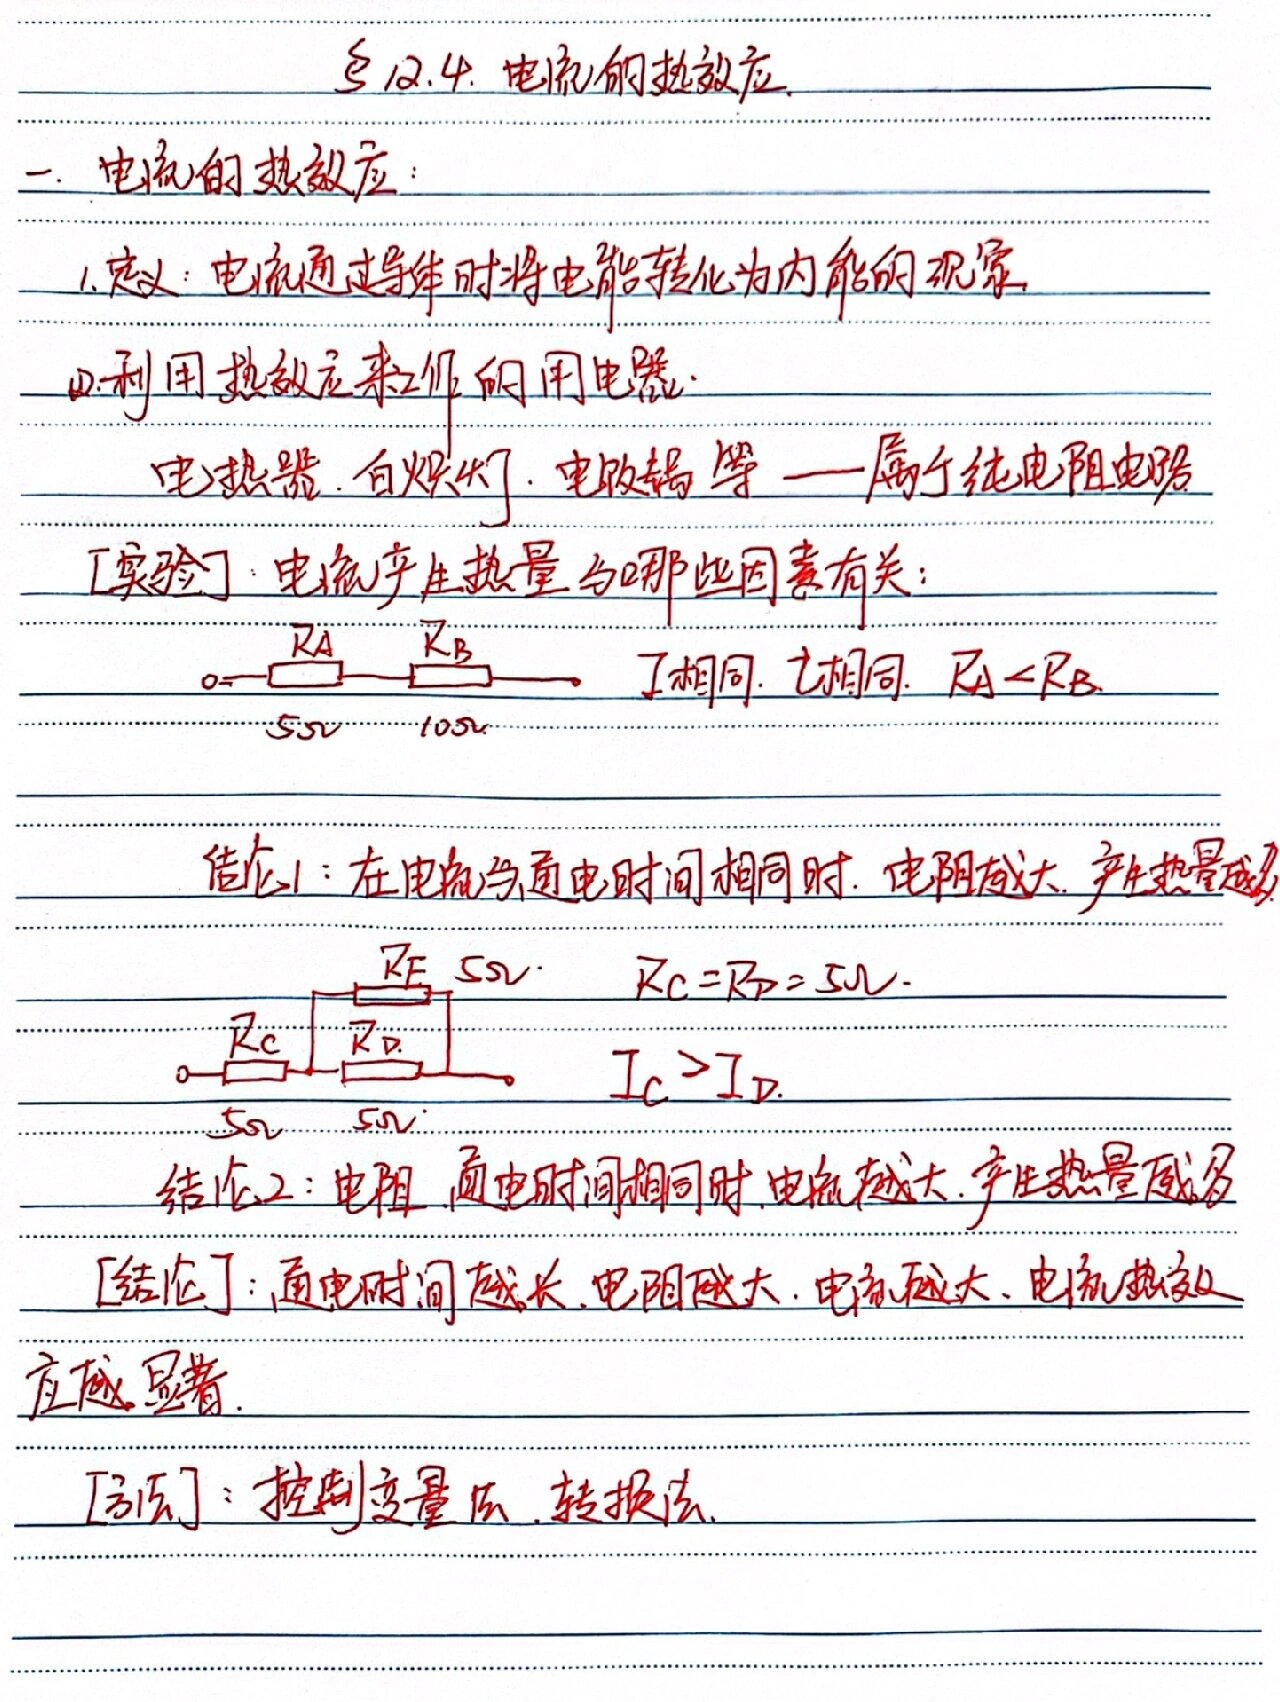 §12.4. 电流的热效应.
一. 电流的热效应:
1.定义: 电流通过导体时将电能转化为内能的现象.
①.利用热效应来工作的用电器.
电热器. 白炽灯. 电饭锅等 —— 属于纯电阻电路
[实验]: 电流产生热量与哪些因素有关:
RA RB
I相同. t相同. RA<RB.
5Ω 10Ω
结论1: 在电流与通电时间相同时. 电阻越大. 产生热量越多.
RE 5Ω. RC=RD=5Ω.
RC RD. IC>ID.
5Ω 5Ω.
结论2: 电阻、通电时间相同时、电流越大. 产生热量越多
[结论]: 通电时间越长. 电阻越大. 电流越大、电流热效
应越显著.
[方法]: 控制变量法、转换法.